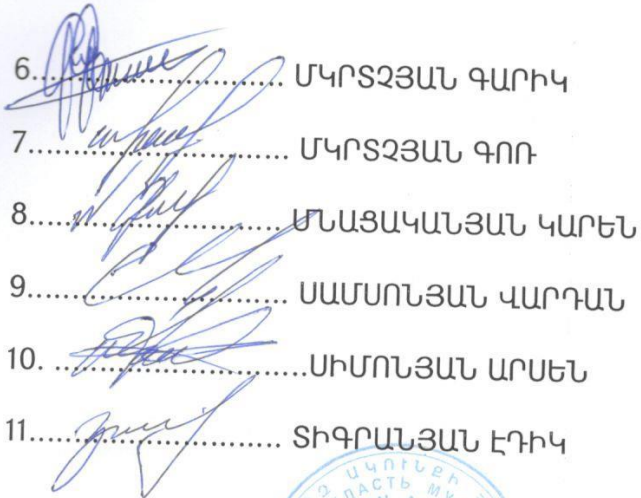 6.................. ՄԿՐՏՉՅԱՆ ԳԱՐԻԿ
7.................. ՄԿՐՏՉՅԱՆ ԳՈՌ
8.................. ՄՆԱՑԱԿԱՆՅԱՆ ԿԱՐԵՆ
9.................. ՍԱՄՍՈՆՅԱՆ ՎԱՐԴԱՆ
10. ..................ՍԻՄՈՆՅԱՆ ԱՐՍԵՆ
11.................. ՏԻԳՐԱՆՅԱՆ ԷԴԻԿ